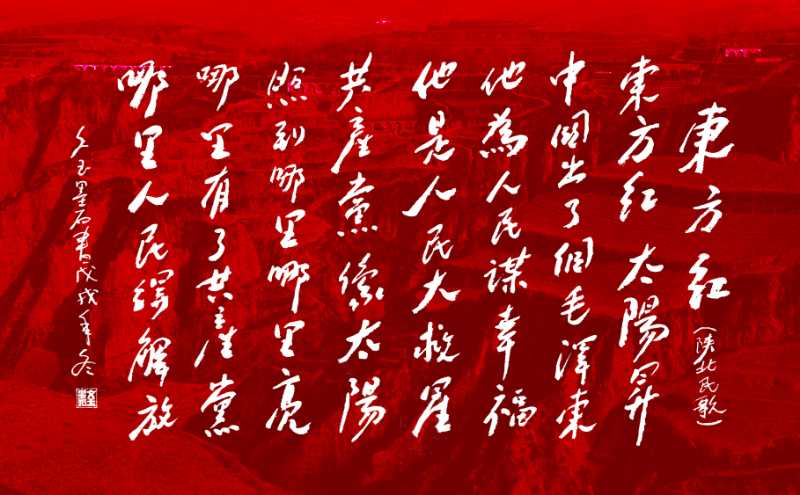 東方红
(陕北民歌)
東方红 太陽昇
中國出了個毛澤東
他為人民謀幸福
他是人民大救星
共產黨像太陽
照到哪里哪里亮
哪里有了共產黨
哪里人民得解放
墨石書戊戌年冬